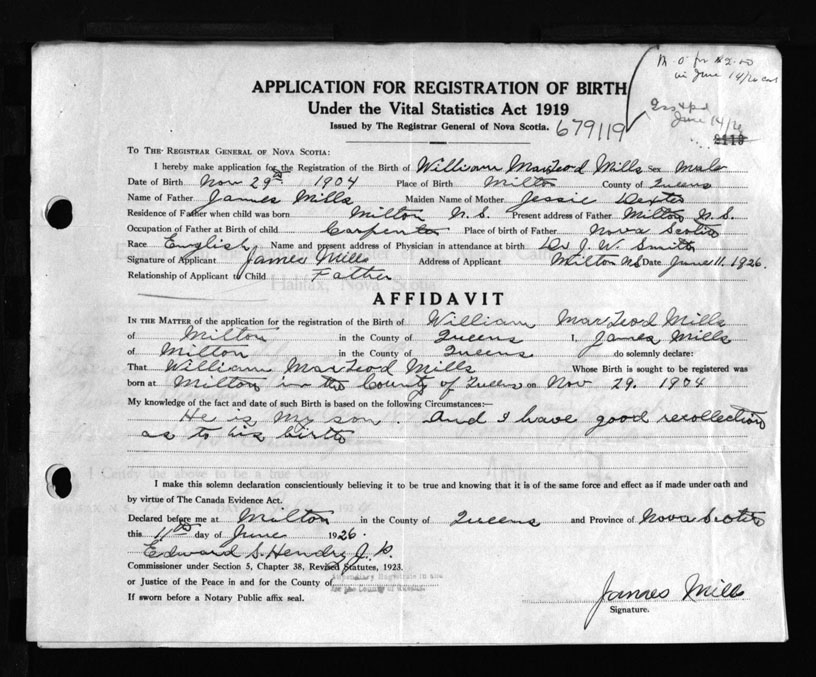 M.O. for $2.00
in June 14/26
June 14/26
APPLICATION FOR REGISTRATION OF BIRTH
Under the Vital Statistics Act 1919
Issued by The Registrar General of Nova Scotia. 679119
2119
TO THE REGISTRAR GENERAL OF NOVA SCOTIA:
I hereby make application for the Registration of the Birth of William MacLeod Mills Sex Male
Date of Birth Nov 29th 1904 Place of Birth Milton County of Queens
Name of Father James Mills Maiden Name of Mother Jessie Dexter
Residence of Father when child was born Milton N.S. Present address of Father Milton N.S.
Occupation of Father at Birth of child Carpenter Place of birth of Father Nova Scotia
Race English Name and present address of Physician in attendance at birth Dr J. W. Smith
Signature of Applicant James Mills Address of Applicant Milton NS Date June 11. 1926.
Relationship of Applicant to Child Father
AFFIDAVIT
IN THE MATTER of the application for the registration of the Birth of William MacLeod Mills
of Milton in the County of Queens I, James Mills
of Milton in the County of Queens do solemnly declare:
That William MacLeod Mills Whose Birth is sought to be registered was
born at Milton in the County of Queens on Nov 29. 1904
My knowledge of the fact and date of such Birth is based on the following Circumstances:—
He is my son. And I have good recollection
as to his birth
I make this solemn declaration conscientiously believing it to be true and knowing that it is of the same force and effect as if made under oath and
by virtue of The Canada Evidence Act.
Declared before me at Milton in the County of Queens and Province of Nova Scotia
this 11th day of June 1926.
Edward S. Hendry J. P.
Commissioner under Section 5, Chapter 38, Revised Statutes, 1923.
or Justice of the Peace in and for the County of
Stipendiary Magistrate in and
for the County of Queens.
If sworn before a Notary Public affix seal.
James Mills
Signature.